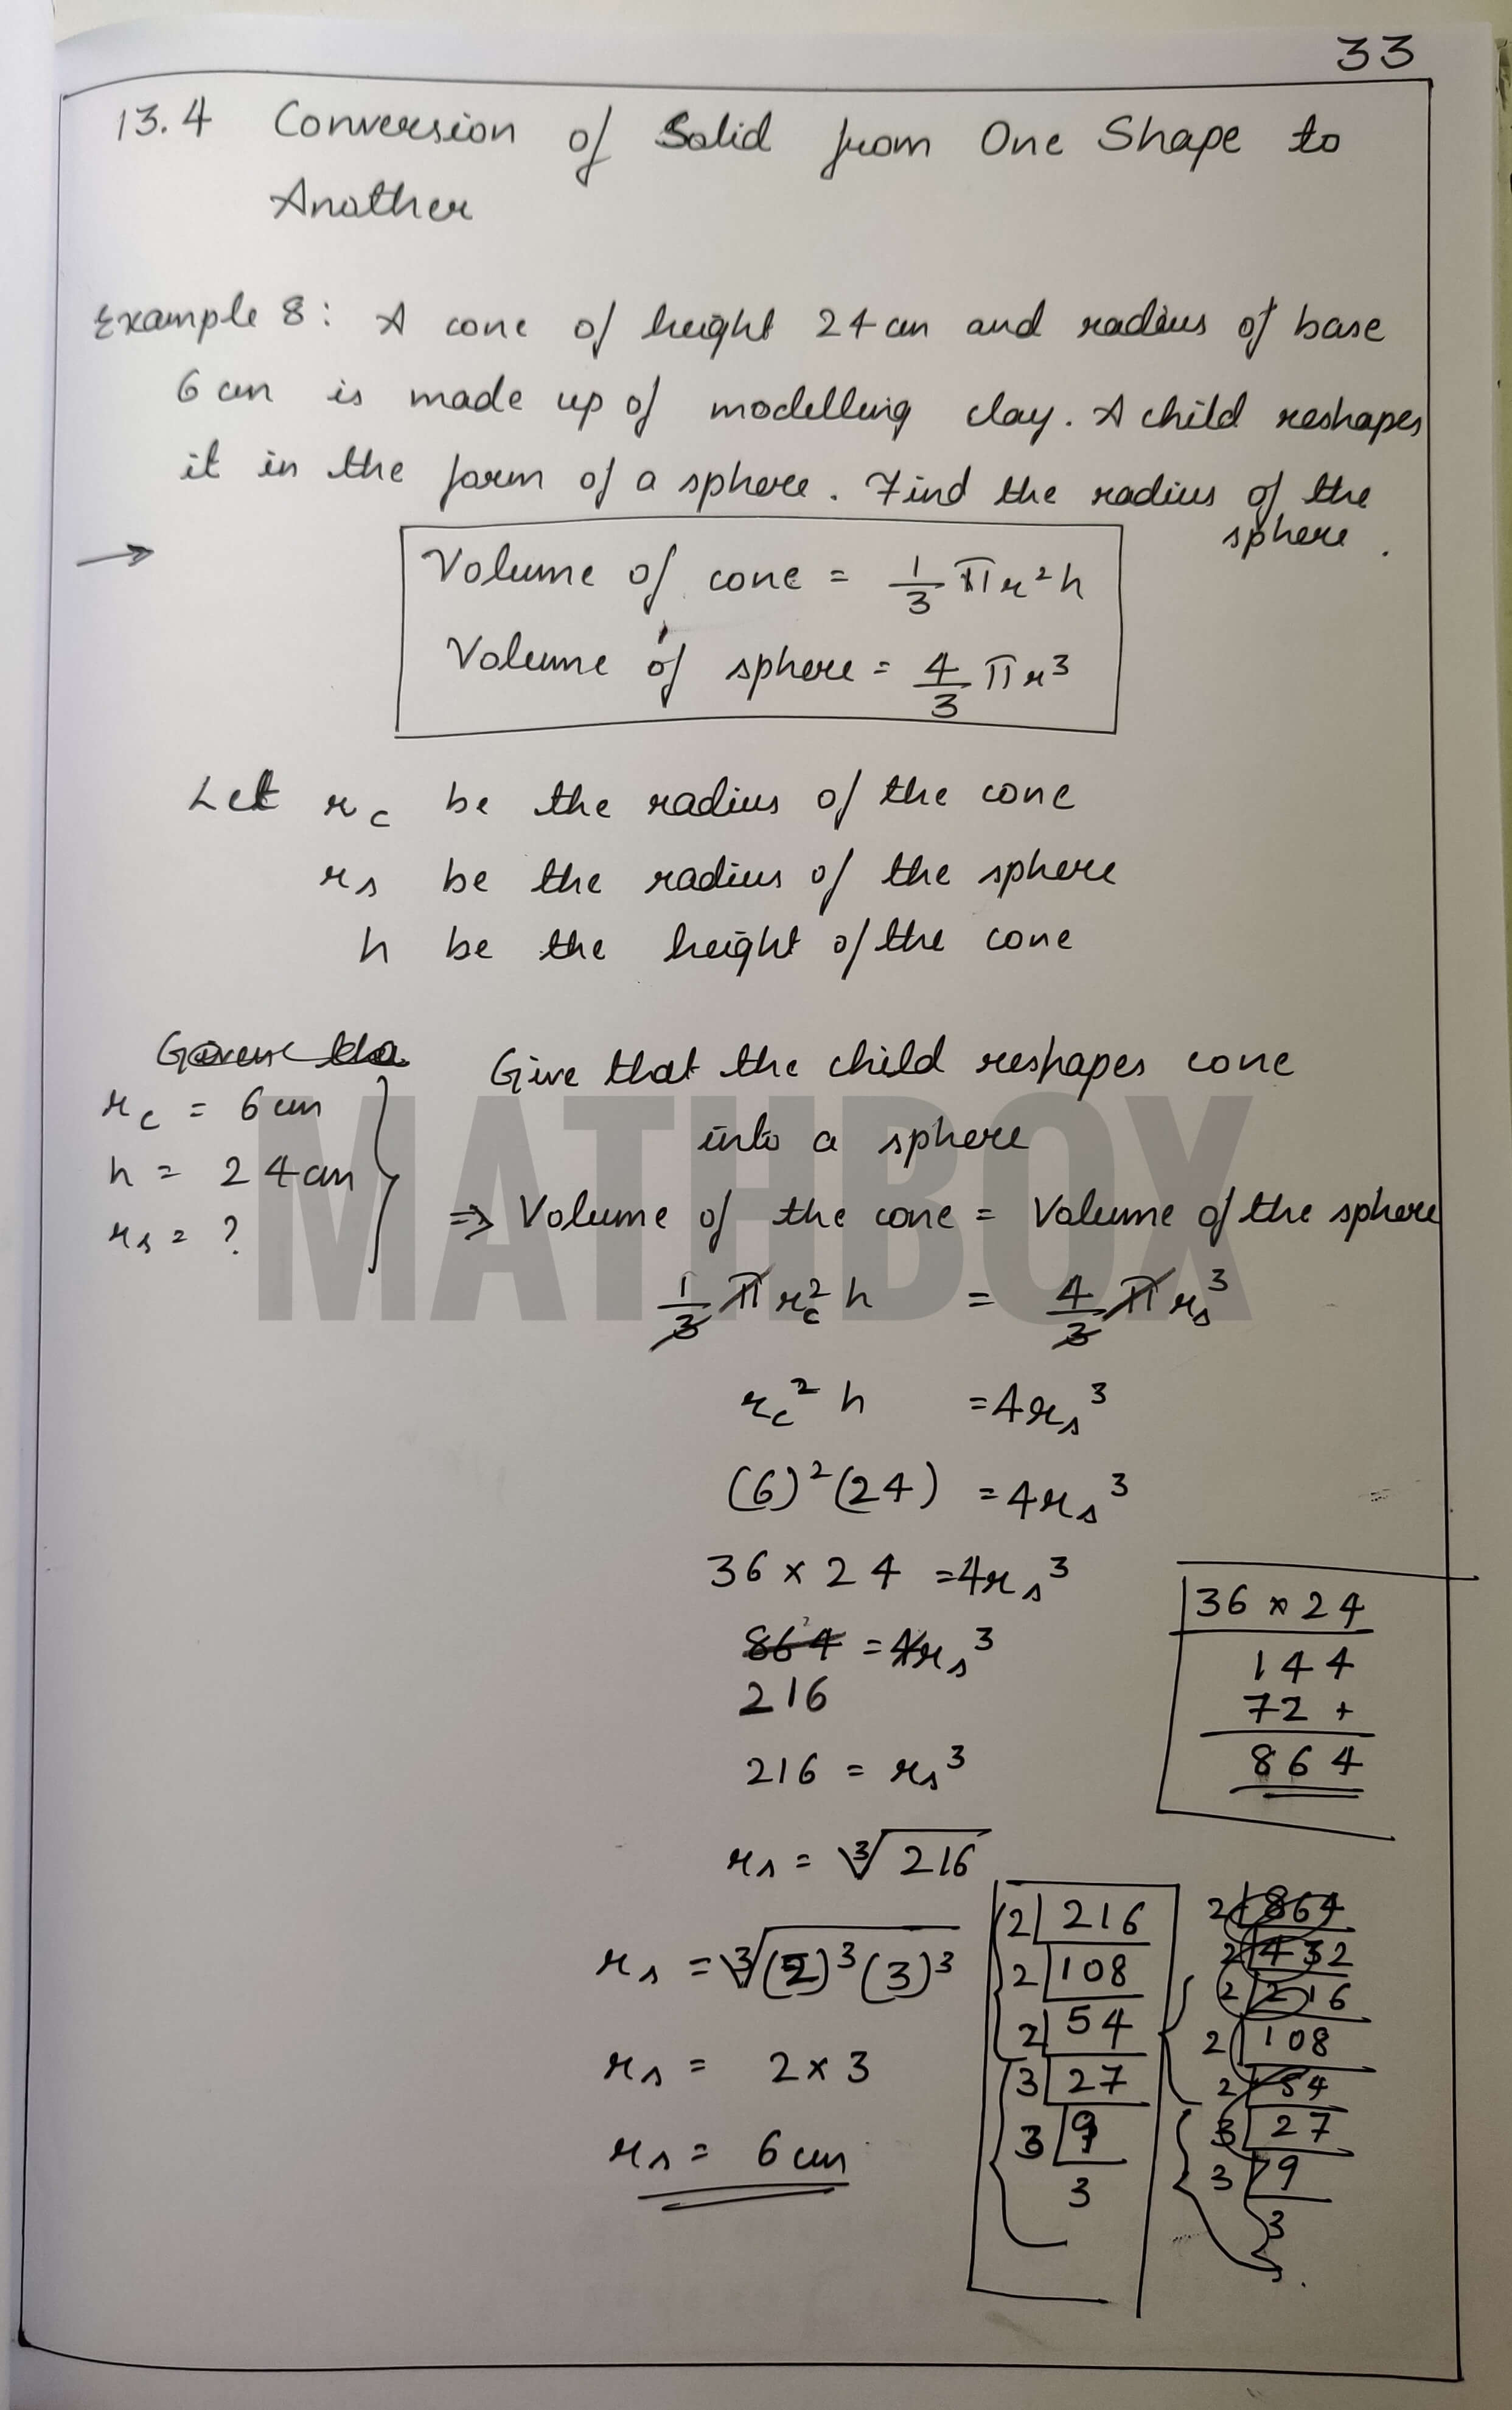 33
13.4 Conversion of Solid from One Shape to
Another
Example 8: A cone of height 24 cm and radius of base
6 cm is made up of modelling clay. A child reshapes
it in the form of a sphere. Find the radius of the
sphere.
→
Volume of cone = 1/3 πr²h
Volume of sphere = 4/3 πr³
Let r_c be the radius of the cone
r_s be the radius of the sphere
h be the height of the cone
r_c = 6 cm
h = 24 cm
r_s = ?
Give that the child reshapes cone
into a sphere
MATHBOX
⇒ Volume of the cone = Volume of the sphere
1/3 π r_c² h = 4/3 π r_s³
r_c² h = 4r_s³
(6)²(24) = 4r_s³
36 × 24 = 4r_s³
864 = 4r_s³
216
216 = r_s³
r_s = ∛216
r_s = ∛(2)³(3)³
r_s = 2 × 3
r_s = 6 cm
36 × 24
144
72 +
864
2 | 216
2 | 108
2 | 54
3 | 27
3 | 9
3
2 | 864
2 | 432
2 | 216
2 | 108
2 | 54
3 | 27
3 | 9
3